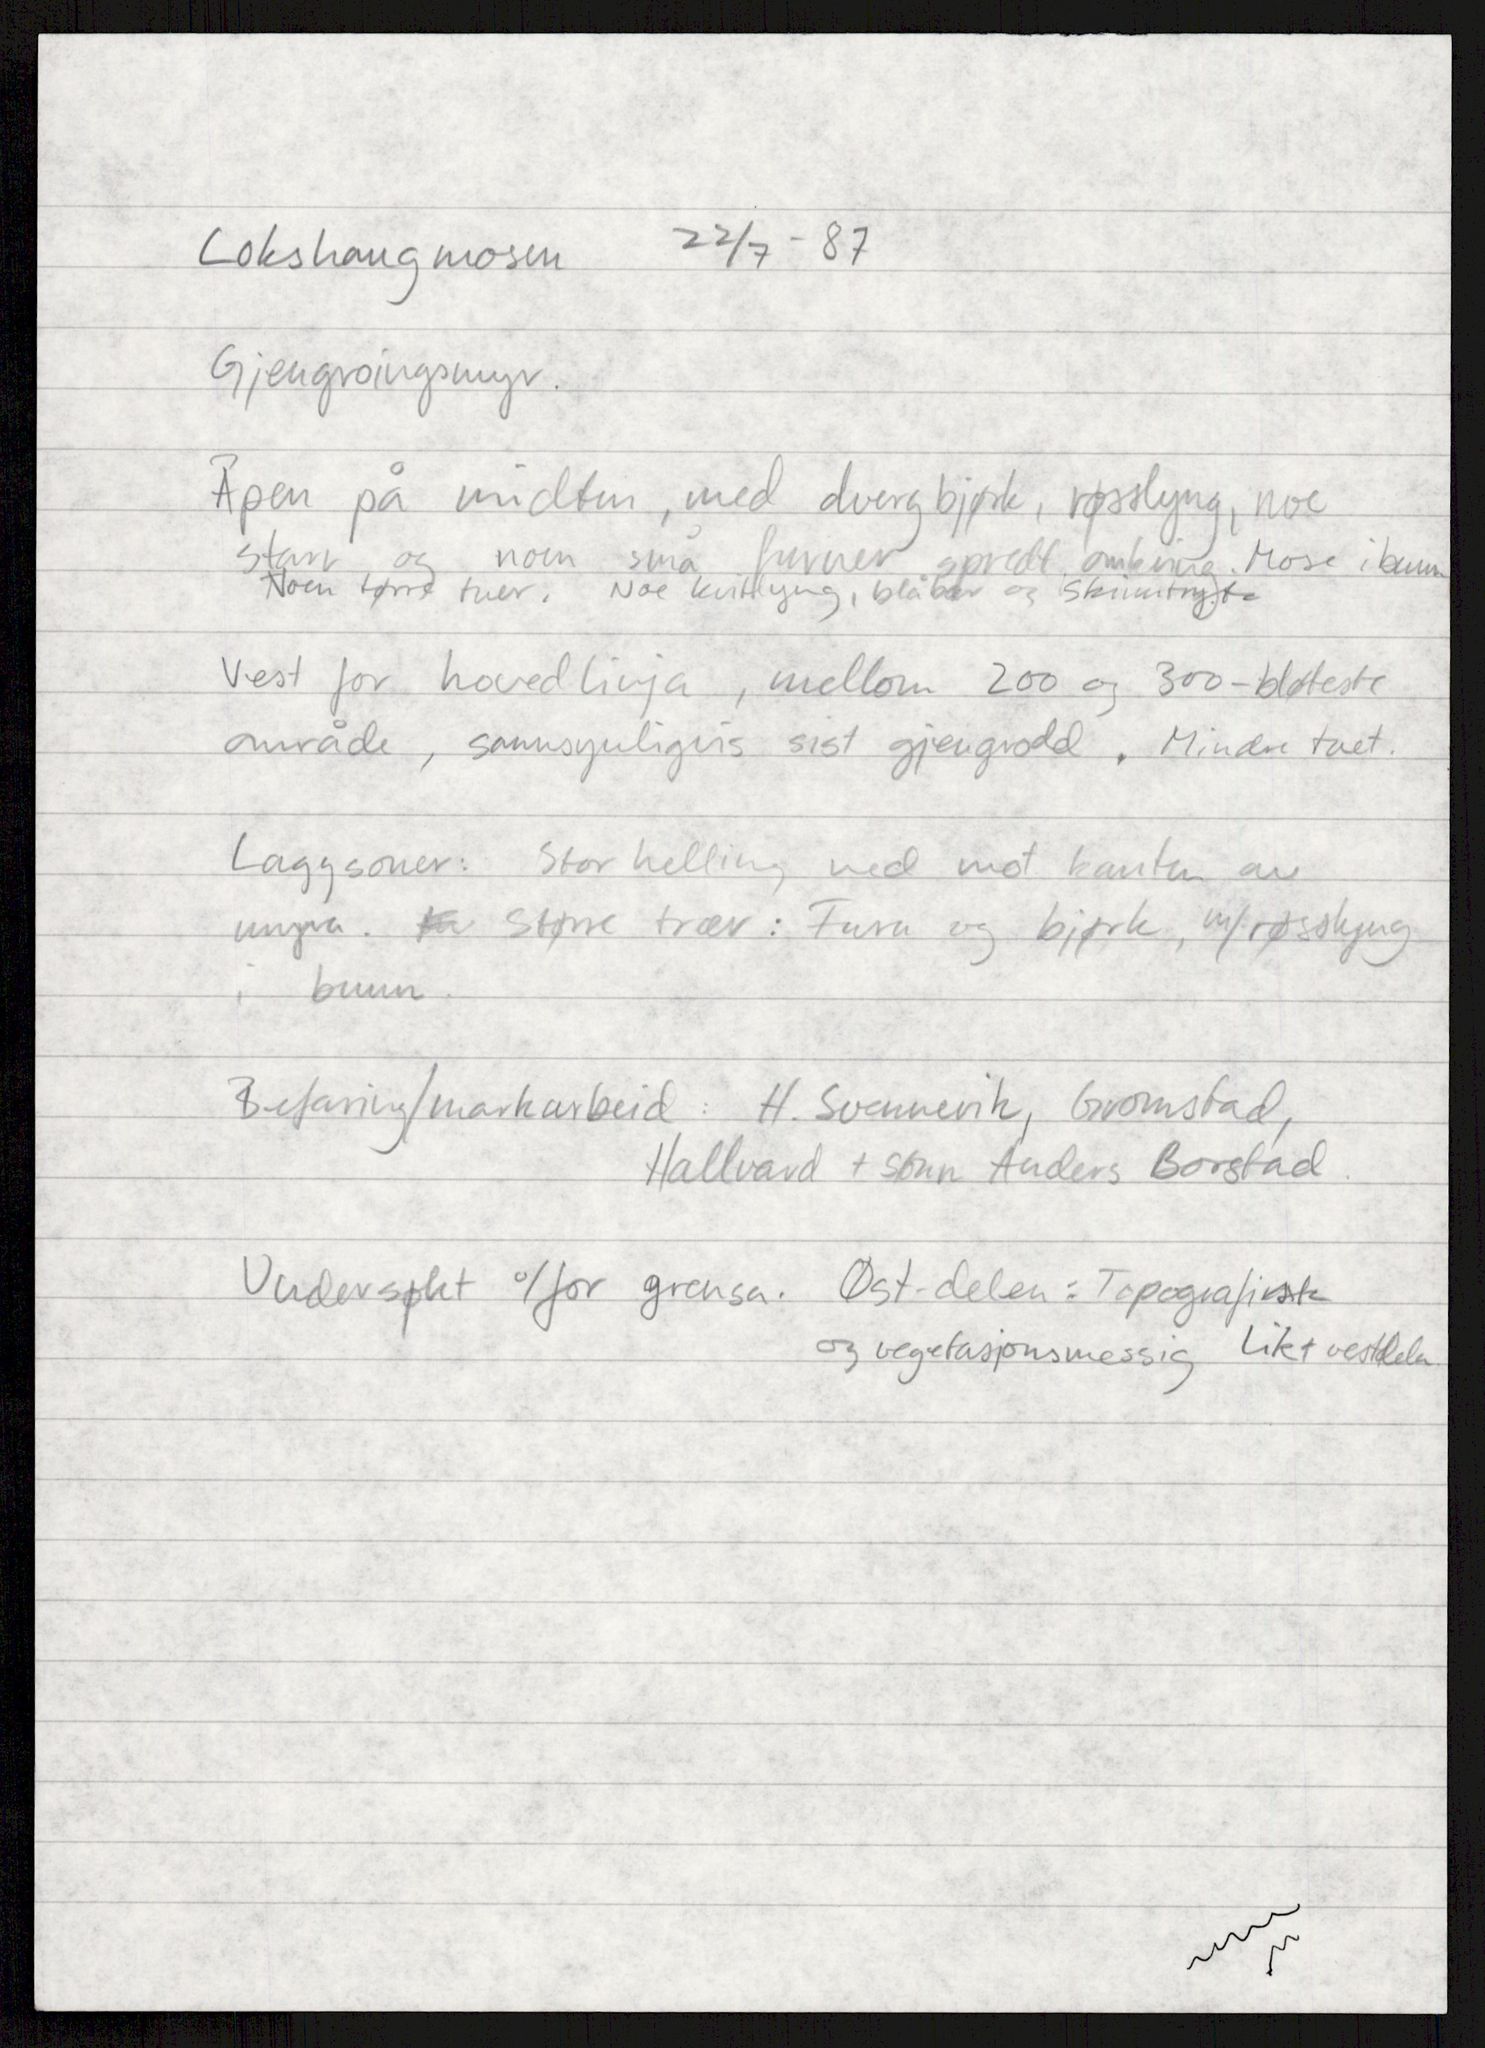 Lokshaugmosen 22/7 - 87
Gjengroingsmyr.
Åpen på midten, med dvergbjørk, røsslyng, noe
starr og noen små furuer spredt omkring. Mose i bunn
Noen tørre tuer. Noe kvitlyng, blåbær og skinntryte
Vest for hovedlinja, mellom 200 og 300 - bløteste
område, sannsynligvis sist gjengrodd. Mindre tuet.
Laggsoner: Stor helling ned mot kanten av
myra. Større trær: Furu og bjørk, m/røsslyng
i bunn.
Befaring/markarbeid: H. Svennevik, Gromstad,
Hallvard + sønn Anders Borstad.
Undersøkt ø/for grensa. Øst-delen: Topografisk
og vegetasjonsmessig likt vestdelen